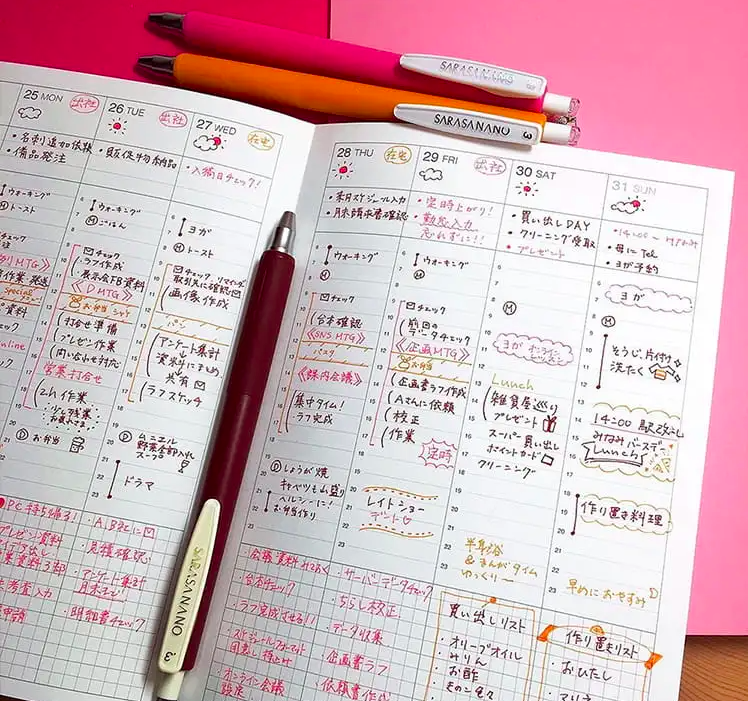 SARASANANO
SARASANANO
25 MON
出社
・名刺追加依頼
・備品発注
ウォーキング
M トースト
26 TUE
出社
・販促物納品
ウォーキング
M ごはん
チェック
ラフ作成
・展示会FB資料
《D MTG》
お弁当
打合せ準備
プレゼン作業
問い合せ対応
営業打合せ
2h 作業
D お弁当
27 WED
在宅
・入稿日チェック!
ヨガ
M トースト
チェック、リマインダ
取引先に確認
画像作成
パン
アンケート集計
資料にまとめ
共有
ラフスケッチ
D ムニエル
野菜全部入れ
スープ
ドラマ
28 THU
在宅
・来月スケジュール入力
・月末請求書確認
ウォーキング
M
チェック
台本確認
《SNS MTG》
パスタ
《課内会議》
集中タイム!
ラフ完成
D しょうが焼
キャベツも山盛り
ヘルシーに!
お弁当作り
29 FRI
出社
・定時上がり!
・勤怠入力
忘れずに!!
ウォーキング
M
チェック
前回の
データチェック
《企画MTG》
お弁当
企画書ラフ作成
Aさんに依頼
校正
作業
定時
レイトショー
デート
30 SAT
・買い出しDAY
・クリーニング受取
・プレゼント
M
ヨガ オンライン
Lunch
雑貨屋
プレゼント
スーパー買い出し
ポイントカード
クリーニング
半身浴
&まんがタイム
ゆっくり〜
31 SUN
・母にTel
・ヨガ予約
ヨガ
M
そうじ、片付け
洗たく
14:00 駅改札
みなみバースデー
Lunch
作り置き料理
早めにおやすみ
PC持ち帰り!
・A、B社に
・見積確認
・アンケート集計
・明細書チェック
・台本チェック
・ラフ完成させる!!
・オンライン会議
設定
・サーバーデータチェック
・ちらし校正
・データ収集
・企画書ラフ
・依頼書作成
買い出しリスト
・オリーブオイル
・みりん
・お酢
・きのこ色々
作り置きリスト
・おひたし
・マリネ
SARASANANO